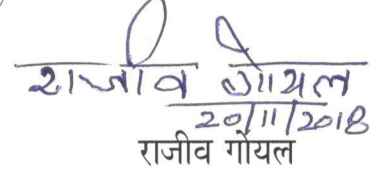 राजीव गोयल
20/11/2018
राजीव गोयल